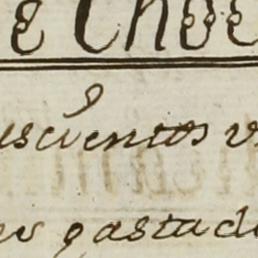 e Choc
uscientos v
es gastad